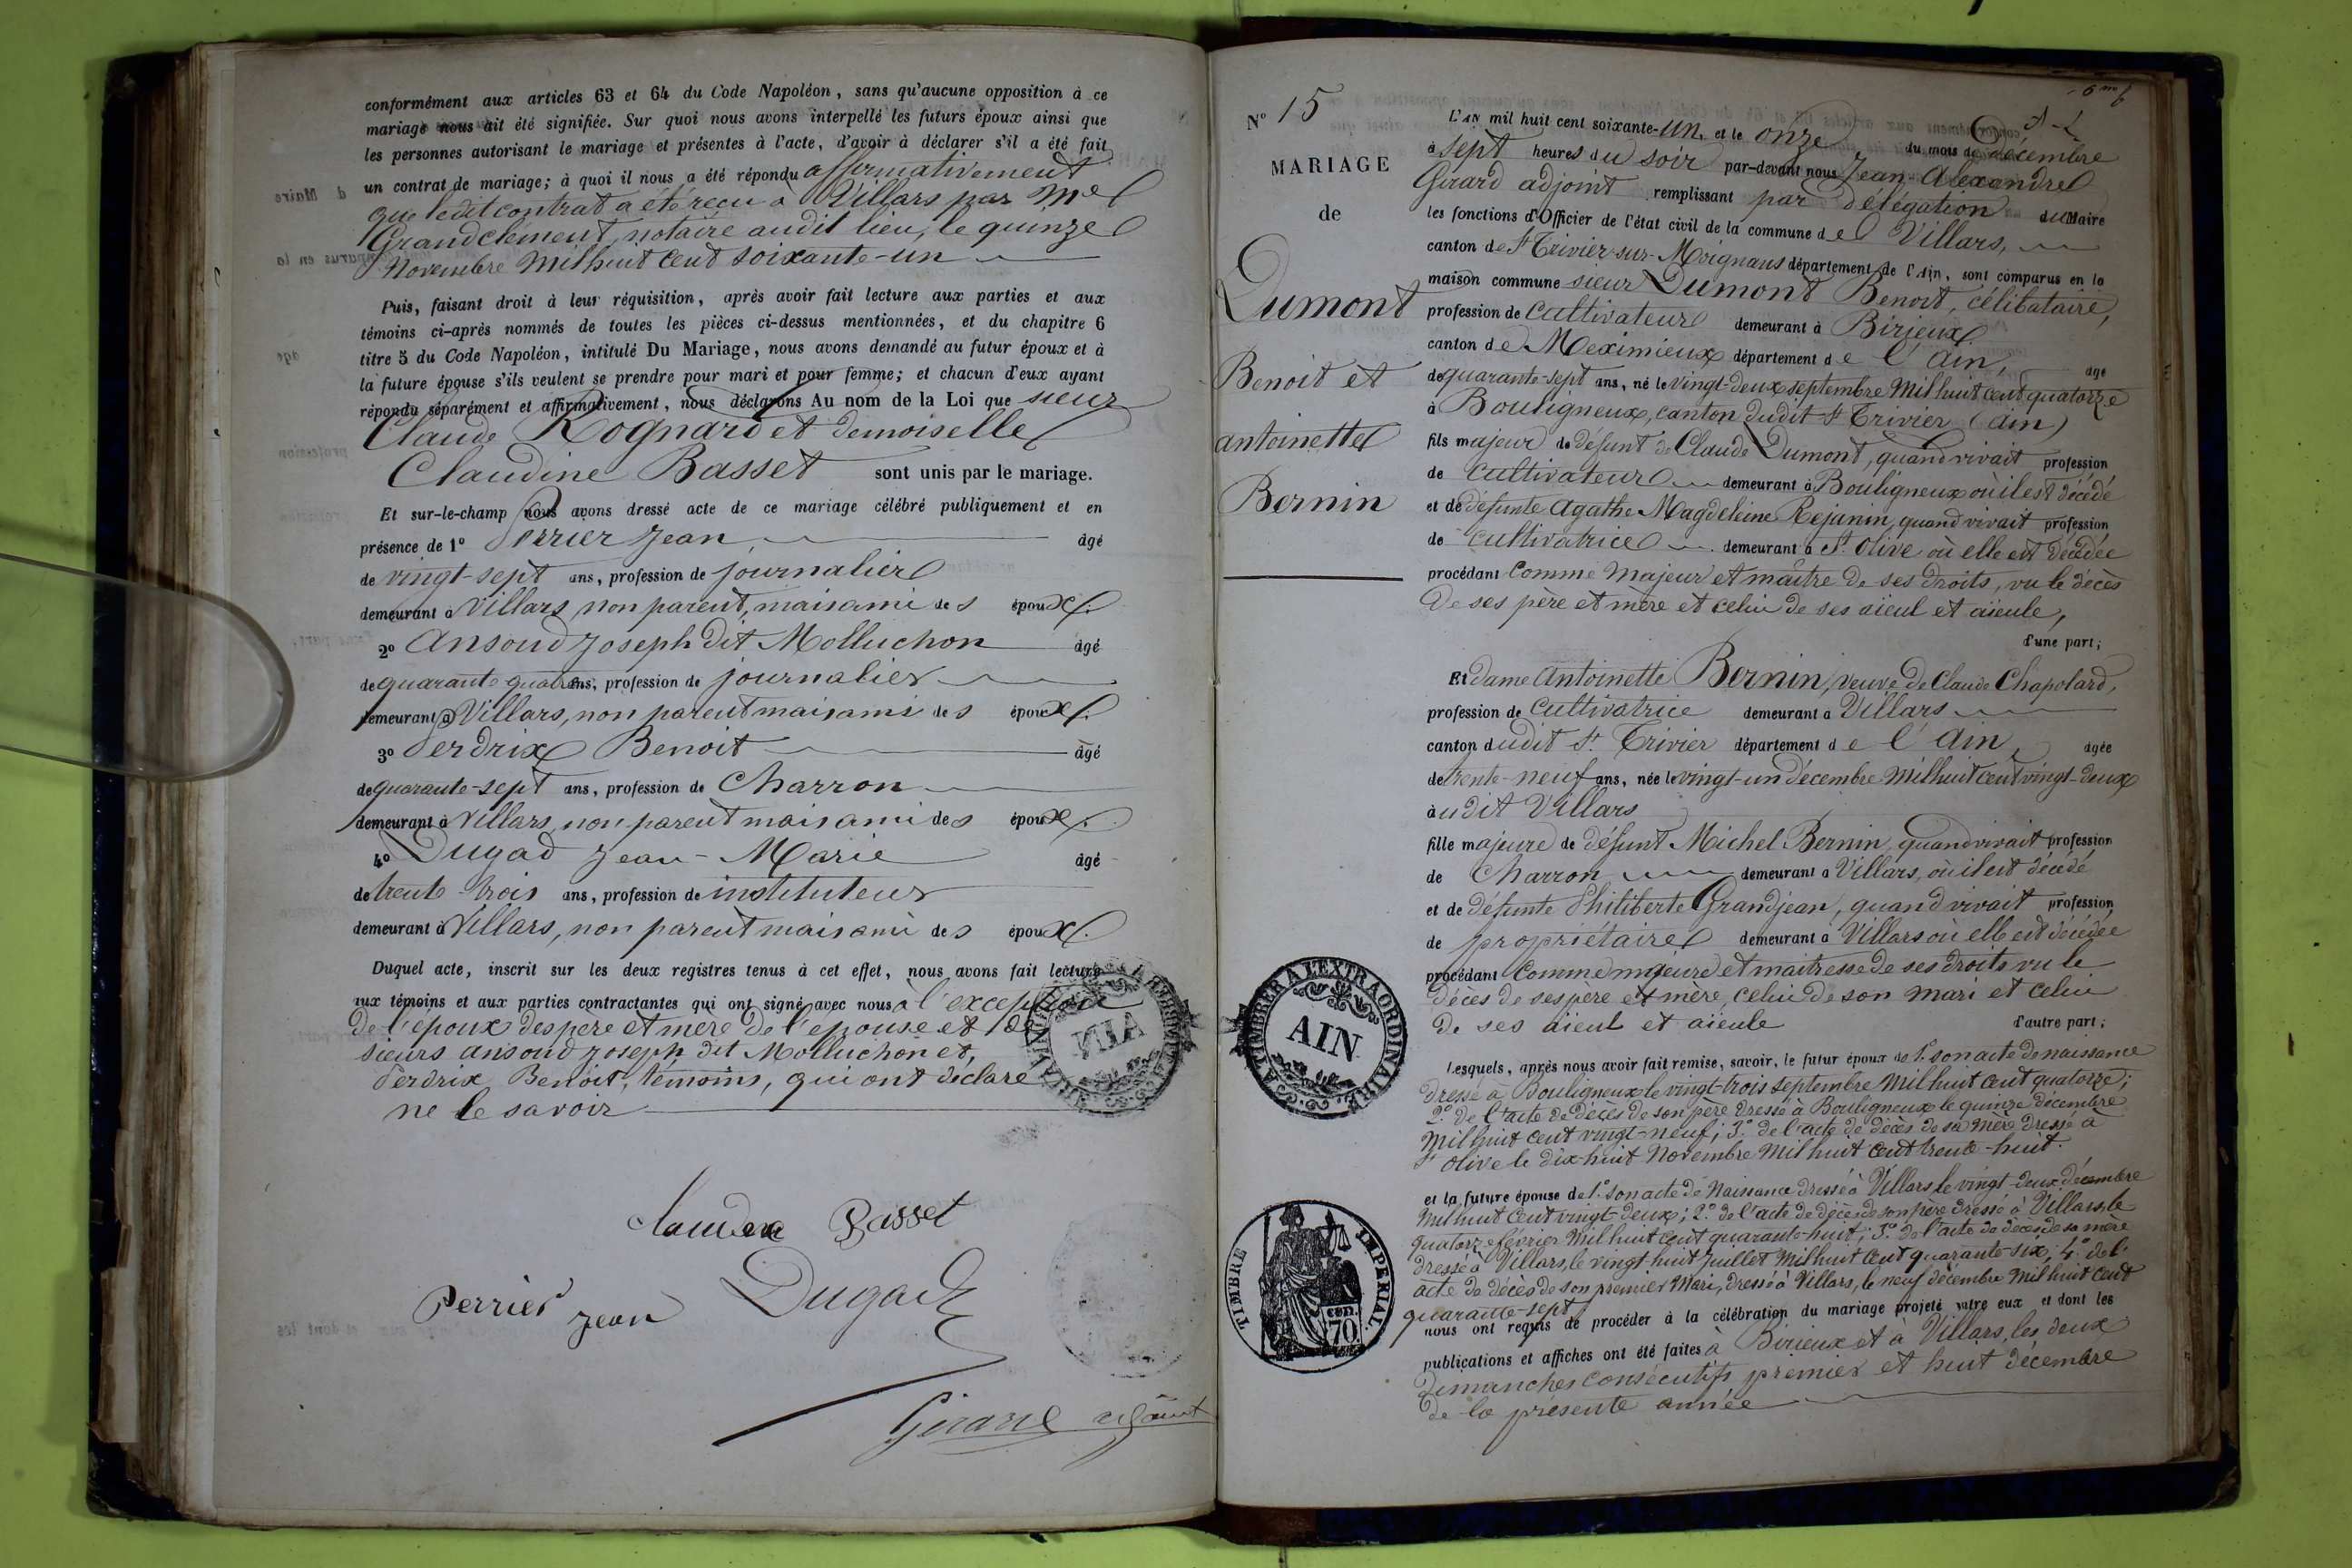 conformément aux articles 63 et 64 du Code Napoléon, sans qu'aucune opposition à ce
mariage nous ait été signifiée. Sur quoi nous avons interpellé les futurs époux ainsi que
les personnes autorisant le mariage et présentes à l'acte, d'avoir à déclarer s'il a été fait
un contrat de mariage; à quoi il nous a été répondu affirmativement
que ledit contrat a été reçu à Villars par Me
Grandclément, notaire audit lieu, le quinze
Novembre mil huit cent soixante-un
Puis, faisant droit à leur réquisition, après avoir fait lecture aux parties et aux
témoins ci-après nommés de toutes les pièces ci-dessus mentionnées, et du chapitre 6
titre 5 du Code Napoléon, intitulé Du Mariage, nous avons demandé au futur époux et à
la future épouse s'ils veulent se prendre pour mari et pour femme; et chacun d'eux ayant
répondu séparément et affirmativement, nous déclarons Au nom de la Loi que sieur
Claude Rognard et demoiselle
Claudine Basset sont unis par le mariage.
Et sur-le-champ nous avons dressé acte de ce mariage célébré publiquement et en
présence de 1º Perrier Jean âgé
de vingt-sept ans, profession de journalier
demeurant à Villars, non parent, mais ami des époux.
2º Ansoud Joseph dit Molluchon âgé
de quarante-quatre ans, profession de journalier
demeurant à Villars, non parent mais ami des époux.
3º Perdrix Benoit âgé
de quarante-sept ans, profession de Charron
demeurant à Villars, non parent mais ami des époux.
4º Dugad Jean-Marie âgé
de trente-trois ans, profession de instituteur
demeurant à Villars, non parent mais ami des époux.
Duquel acte, inscrit sur les deux registres tenus à cet effet, nous avons fait lecture
aux témoins et aux parties contractantes qui ont signé avec nous à l'exception
de l'époux des père et mère de l'épouse et des
sieurs Ansoud Joseph dit Molluchon et,
Perdrix Benoit, témoins, qui ont déclaré
ne le savoir
AIN
Basset
Perrier Jean
Dugad
Girard adjoint
Nº 15
MARIAGE
de
Dumont
Benoit et
antoinette
Bernin
A TIMBRER A L'EXTRAORDINAIRE
AIN
TIMBRE IMPERIAL
CEN.
70
L'AN mil huit cent soixante-un, et le onze du mois de décembre
à sept heures du soir par-devant nous Jean Alexandre
Girard adjoint remplissant par délégation du Maire
les fonctions d'Officier de l'état civil de la commune de Villars,
canton de St Trivier-sur-Moignans département de l'Ain, sont comparus en la
maison commune sieur Dumont Benoit, célibataire,
profession de cultivateur demeurant à Birieux
canton de Meximieux département de l'Ain, âgé
de quarante-sept ans, né le vingt-deux septembre mil huit cent quatorze
à Bouligneux, canton dudit St Trivier (Ain)
fils majeur de défunt de Claude Dumont, quand vivait profession
de cultivateur demeurant à Bouligneux où il est décédé
et de défunte Agathe Magdeleine Rejanin, quand vivait profession
de cultivatrice demeurant à St Olive où elle est décédée
procédant comme majeur et maître de ses droits, vu le décès
de ses père et mère et celui de ses aïeul et aïeule,
d'une part;
Et dame Antoinette Bernin, veuve de Claude Chapolard,
profession de cultivatrice demeurant à Villars
canton dudit St Trivier département de l'Ain, âgée
de trente-neuf ans, née le vingt-un décembre mil huit cent vingt-deux
audit Villars
fille majeure de défunt Michel Bernin, quand vivait profession
de Charron demeurant à Villars, où il est décédé
et de défunte Philiberte Grandjean, quand vivait profession
de propriétaire demeurant à Villars où elle est décédée
procédant comme majeure et maitresse de ses droits vu le
décès de ses père et mère, celui de son mari et celui
de ses aïeul et aïeule d'autre part;
Lesquels, après nous avoir fait remise, savoir, le futur époux de 1º son acte de naissance
dressé à Bouligneux le vingt-trois septembre mil huit cent quatorze;
2º de l'acte de décès de son père dressé à Bouligneux le quinze décembre
mil huit cent vingt-neuf; 3º de l'acte de décès de sa mère dressé à
St Olive le dix-huit Novembre mil huit cent trente-huit.
et la future épouse de 1º son acte de Naissance dressé à Villars le vingt-deux décembre
mil huit cent vingt-deux; 2º de l'acte de décès de son père dressé à Villars, le
quatorze février mil huit cent quarante-huit; 3º de l'acte de décès de sa mère
dressé à Villars, le vingt-huit Juillet mil huit cent quarante-six; 4º de l'
acte de décès de son premier Mari, dressé à Villars, le neuf décembre mil huit cent
quarante-sept
nous ont requis de procéder à la célébration du mariage projeté entre eux et dont les
publications et affiches ont été faites à Birieux et à Villars, les deux
dimanches consécutifs premier et huit décembre
de la présente année